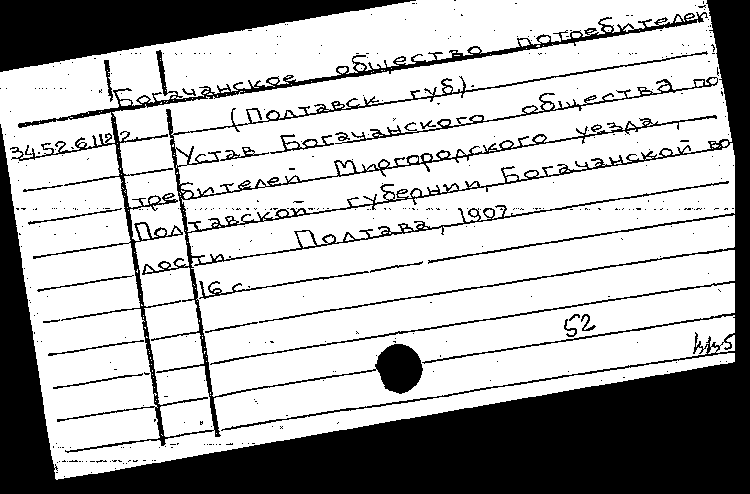 Богачанское общество потребителей
(Полтавск губ).
34.52.6.112 2.
Устав Богачанского общества по
требителей Миргородского уезда,
Полтавской губернии, Богачанской во
лости. Полтава, 1907.
16 с.
52